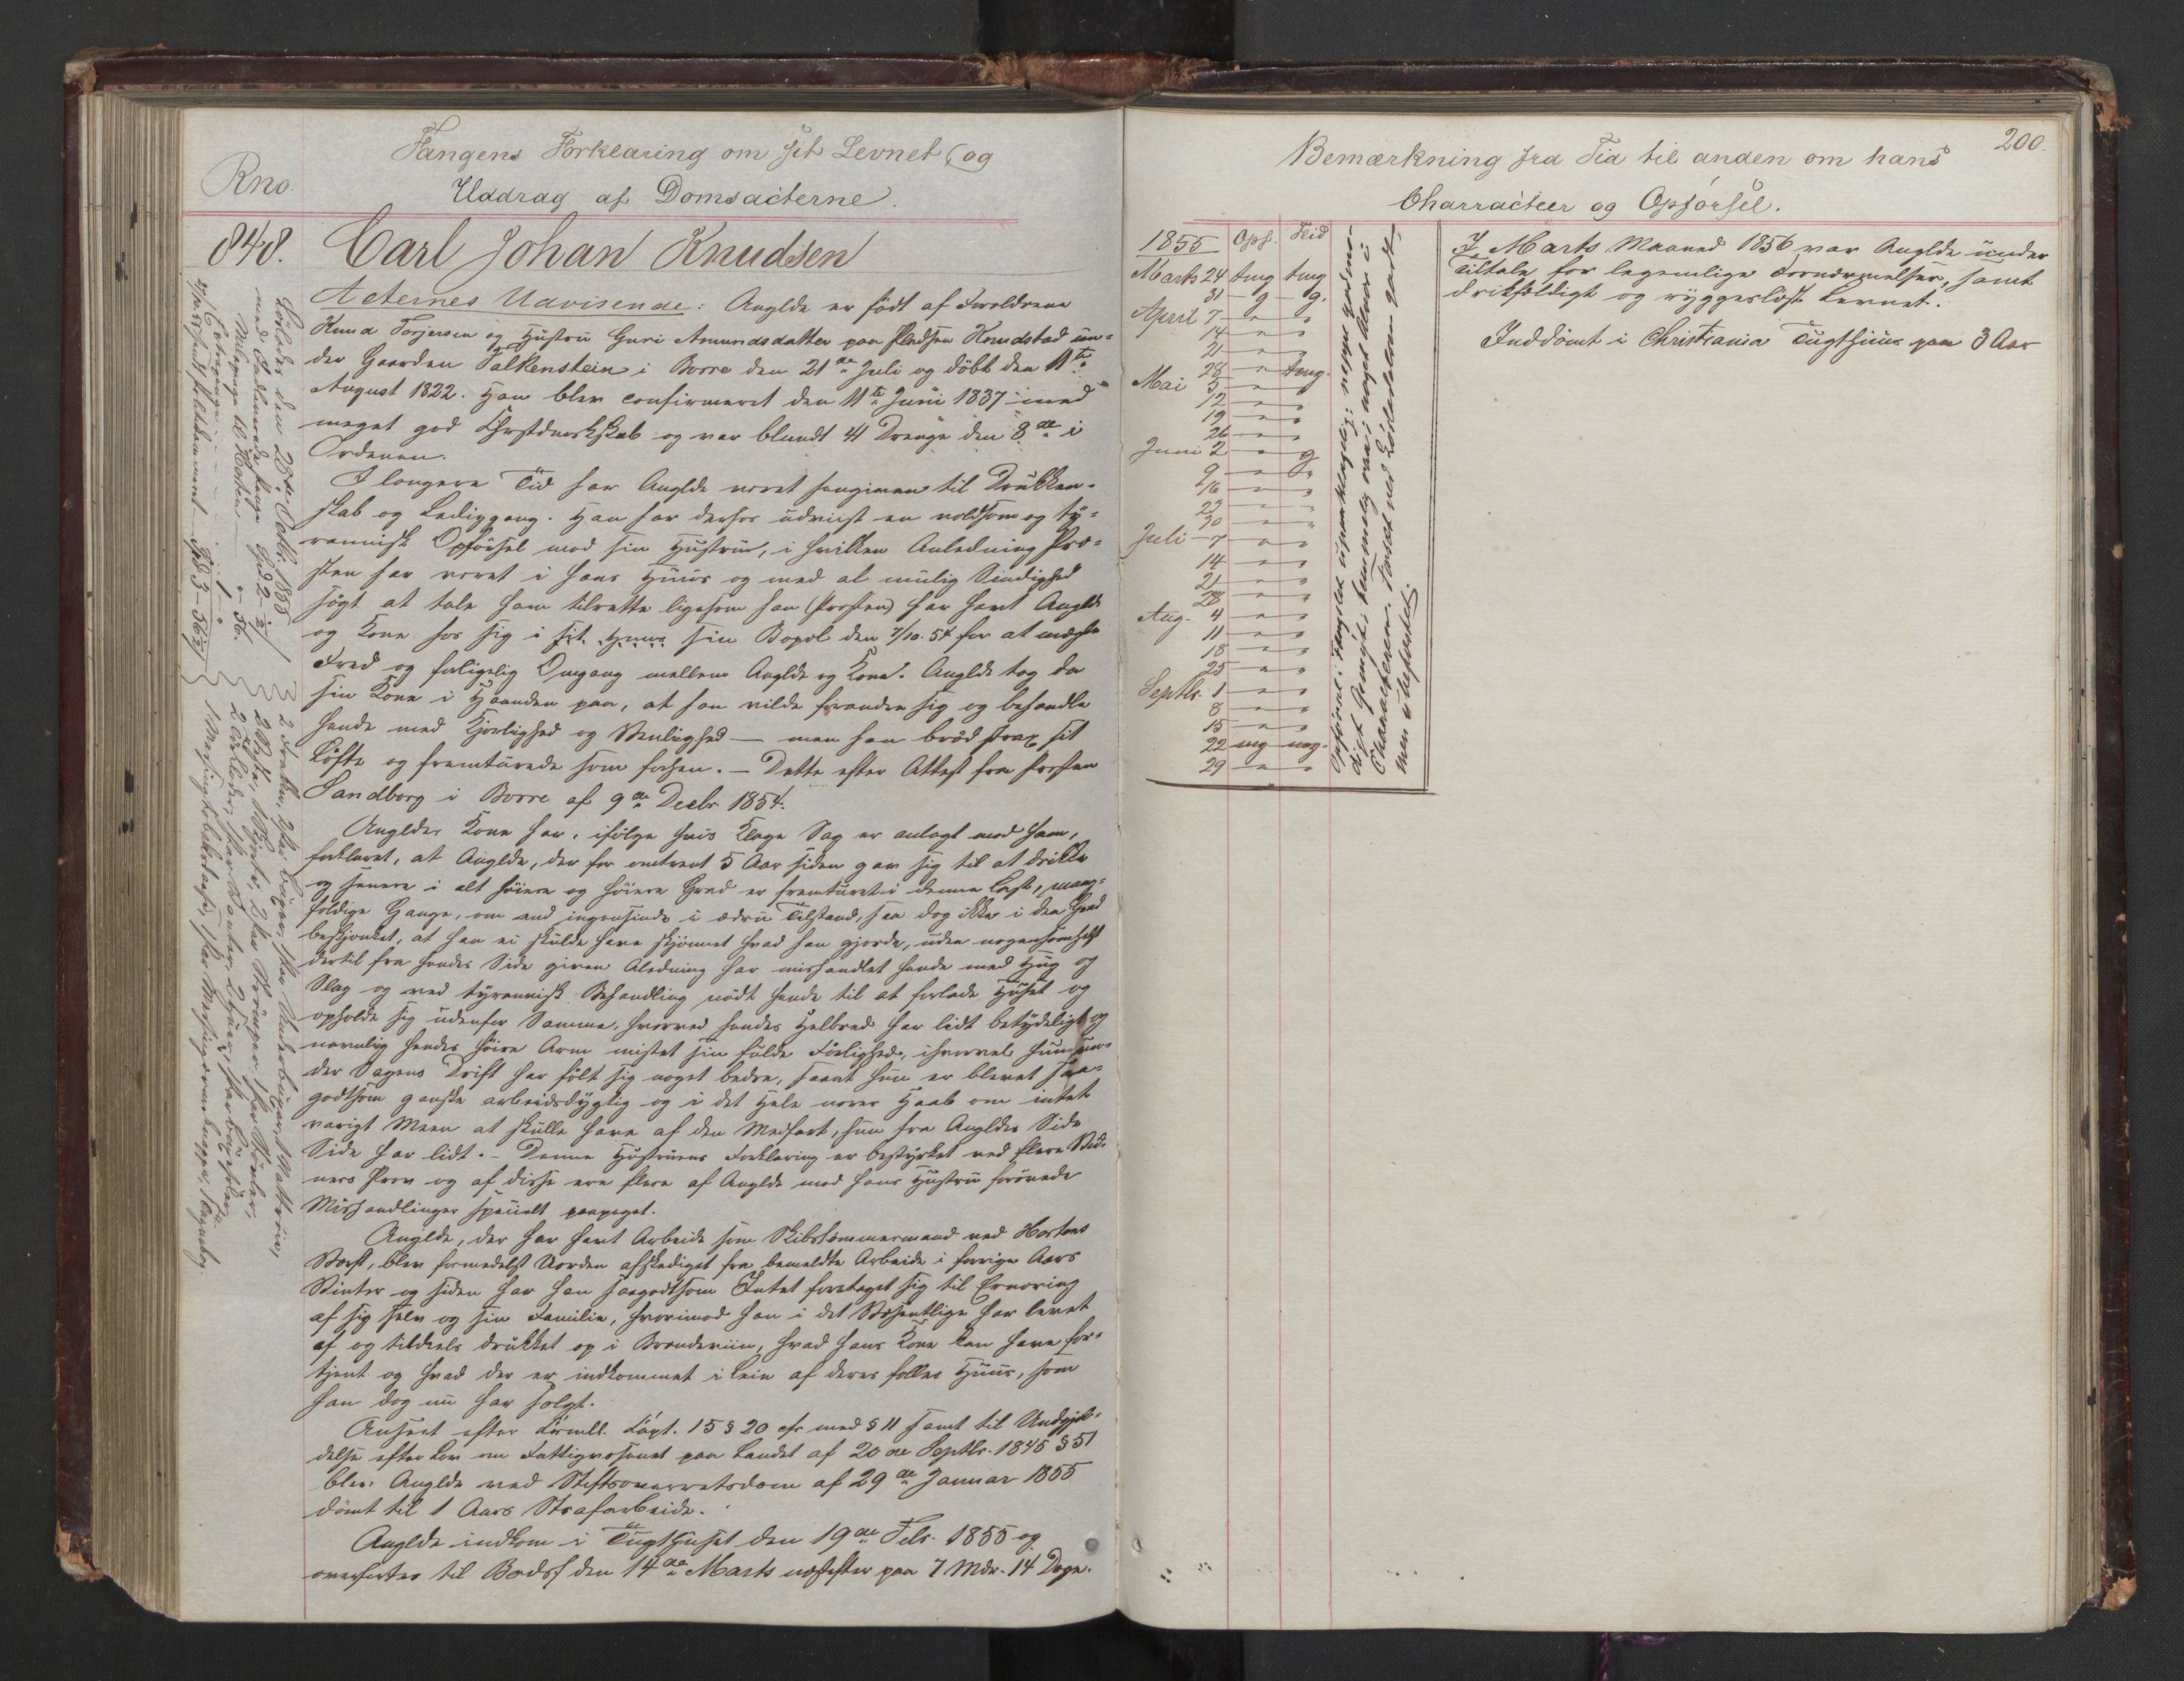 Fangens Forklaring om sit Levnet (og
Rno.
Uddrag af Domsacterne.
848. Carl Johan Knudsen
Acternes Udvisende: Anglde er født af Forældrene
Knud Torjersen og Hustru Guri Amundsdatter paa Pladsen Knudstad un-
der Gaarden Falkenstein i Borre den 21de Juli og døbt den 11te
August 1822. Han blev confirmeret den 11te Juni 1837 med
meget god Christdomskskab og var blandt 41 Drenge den 8de i
Ordenen.
I længere Tid har Anglde været hengiven til Drukken-
skab og Lediggang. Han har derhos udviist en voldsom og ty-
rannisk Opførsel mod sin Hustru, i hvilken Anledning Præ-
sten har været i hans Huus og med al mulig Sindighed
søgt at tale ham tilrette ligesom han (Præsten) har havt Anglde
og Kone hos sig i sit Huus sin Bopæl den 7/10. 54 for at mægle
Fred og forligelig Omgang mellem Anglde og Kone. Anglde tog da
sin Kone i Haanden paa, at han vilde forandre sig og behandle
hende med Kjærlighed og Venlighed — men han brød strax sit
Løfte og fremturede som forhen. — Dette efter Attest fra Præsten
Sandberg i Borre af 9de Decbr 1854.
Angldes Kone har, ifølge hvis Klage Sag er anlagt mod ham,
forklaret, at Anglde, der for omtrent 5 Aar siden gav sig til at drikke
og senere i alt høiere og høiere Grad er fremturet i denne Last, mang-
foldige Gange, om end ingensinde i ædru Tilstand, saa dog ikke i den Grad
beskjænket, at han ei skulde have skjønnet hvad han gjorde, uden nogensomhelst
dertil fra hendes Side given Aledning har mishandlet hende med Hug og
Slag og ved tyrannisk Behandling nødt hende til at forlade Huset og
opholde sig udenfor Samme, hvorved hendes Helbred har lidt betydeligt og
navnlig hendes høire Arm mistet sin fulde Førlighed, ihvorvel hun un-
der Sagens Drift har følt sig noget bedre, samt hun er blevet saa-
godtsom ganske arbeidsdygtig og i det Hele nærer Haab om intet
varigt Meen at skulle have af den Medfart, hun fra Angldes Side
Side har lidt. — Denne Hustruens Forklaring er bestyrket ved flere Vid-
ners Prov og af disse ere flere af Anglde mod hans Hustru forøvede
Mishandlinger specielt paapeget.
Anglde, der har havt Arbeide som Skibstømmermand ved Hortens
Værft, blev formedelst Uorden afskediget fra bemeldte Arbeide i forrige Aars
Vinter og siden har han saagodtsom Intet foretaget sig til Ernæring
af sig selv og sin Familie, hvorimod han i det Væsentlige har levet
af og tildeels drukket op i Brændeviin, hvad hans Kone kan have for-
tjent og hvad der er indkommet i Leie af deres fælles Huus, som
han dog nu har solgt.
Anseet efter Crmll. Capt. 15 § 20 cfr med § 11 samt til Undgjæl-
delse efter Lov om Fattigvæsenet paa Landet af 20de Septbr. 1845 § 51
blev Anglde ved Stiftsoverretsdom af 29de Januar 1855
dømt til 1 Aars Strafarbeide.
Anglde indkom i Tugthuset den 19de Febr. 1855 og
overførtes til Bodsf. den 14de Marts næstefter paa 7 Mdr. 14 Dage.
Løslades den 28de Octbr. 1855
200.
Bemærkning fra Tid til anden om hans
Charracteer og Opførsel.
1855 Opf. Flid
Marts 24 tmg tmg
31 — g — g.
April 7 — " — "
14 — " — "
21 — " — "
28 — " — tmg.
Mai 5 — " — "
12 — " — "
19 — " — "
26 — " — "
Juni 2 — " — g
9 — " — "
16 — " — "
23 — " — "
30 — " — "
Juli — 7 — " — "
14 — " — "
21 — " — "
28 — " — "
Aug. 4 — " — "
11 — " — "
18 — " — "
25 — " — "
Septbr. 1 — " — "
8 — " — "
15 — " — "
22 mg — mg.
29 — " — "
I Marts Maaned 1856 var Anglde under
Tiltale for legemlige Fornærmelser, samt
drikfældigt og ryggesløst Levnet.
Inddømt i Christiania Tugthuus paa 3 Aar